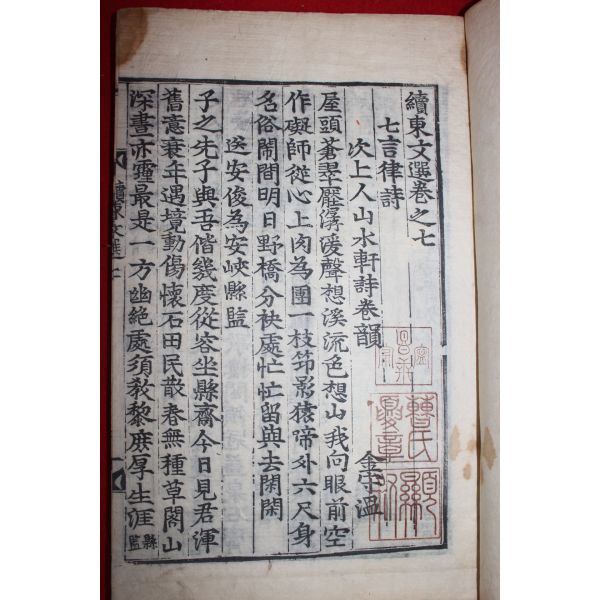 續東文選卷之七
七言律詩
次上人山水軒詩卷韻
金守溫
屋頭蒼翠壓潺湲聲想溪流色想山我向眼前空
作礙師從心上肉為團一枝笻影猿啼外六尺身
名俗鬧間明日野橋分袂處忙忙留與去閑閑
送安俊為安峽縣監
子之先子與吾偕幾度從容坐縣齋今日見君渾
舊意衰年遇境動傷懷石田民散春無種草閣山
深晝亦霾最是一方幽絶處須敎黎庶厚生涯縣監
續東文選七
曹氏